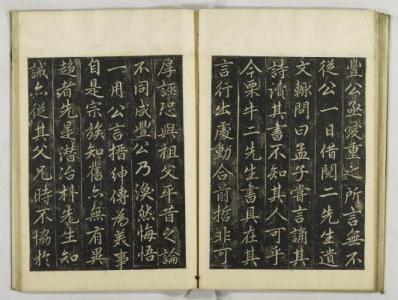 豐公亟愛重之所言無不
從公一日借閱二先生遺
文輙問曰孟子嘗言誦其
詩讀其書不知其人可乎
今栗牛二先生書具在其
言行出處動合前哲非可
厚誣恐與祖父平昔之論
不同咸豐公乃渙然悔悟
一用公言搢紳傳為美事
自是宗族知舊亦無有異
趍者先是潛治朴先生知
誡亦從其父兄時不協於